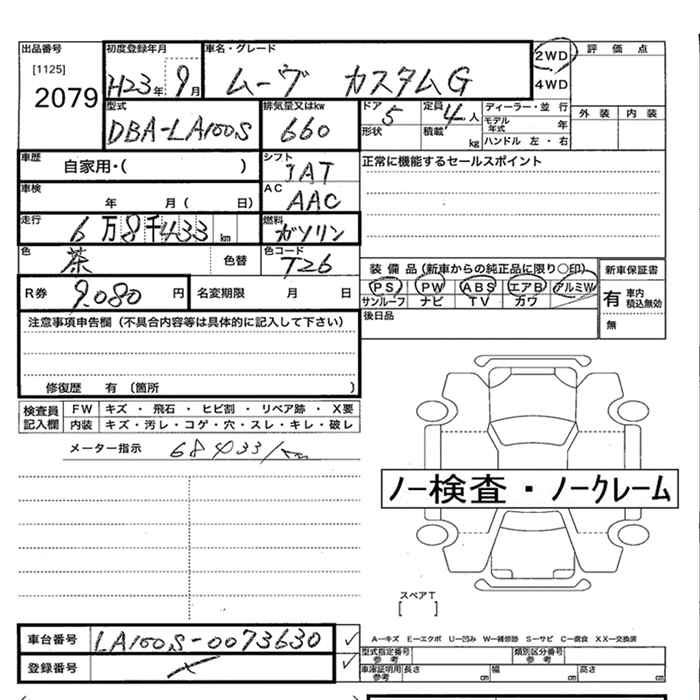 出品番号 初度登録年月 車名・グレード 2WD 評価点
[1125] H23年 9月 ムーヴ カスタムG 4WD
2079 外装 内装
型式 排気量又はkw ドア 5 定員 4人 ディーラー・並行
DBA-LA100S 660 形状 積載 kg モデル年式 年
ハンドル 左・右
車歴 自家用・( ) シフト IAT 正常に機能するセールスポイント
車検 年 月( 日) AC AAC
走行 6万8千433km 燃料 ガソリン
色 茶 色替 色コード T26 装備品(新車からの純正品に限り○印) 新車保証書
R券 9,080円 名変期限 月 日 PS PW ABS エアB アルミW 有 車内積込無効
サンルーフ ナビ TV カワ 無
注意事項申告欄(不具合内容等は具体的に記入して下さい) 後日品
修復歴 有 〔箇所 〕
検査員記入欄 FW キズ・飛石・ヒビ割・リペア跡・X要
内装 キズ・汚レ・コゲ・穴・スレ・キレ・破レ
メーター指示 68433km
ノー検査・ノークレーム
スペアT
[ ]
車台番号 LA100S-0073630 ✓ A−キズ E−エクボ U−凹み W−補修跡 S−サビ C−腐食 XX−交換済
型式指定番号 参考 類別区分番号 参考
登録番号 ✓ 車庫証明用 参考 長さ cm 幅 cm 高さ cm